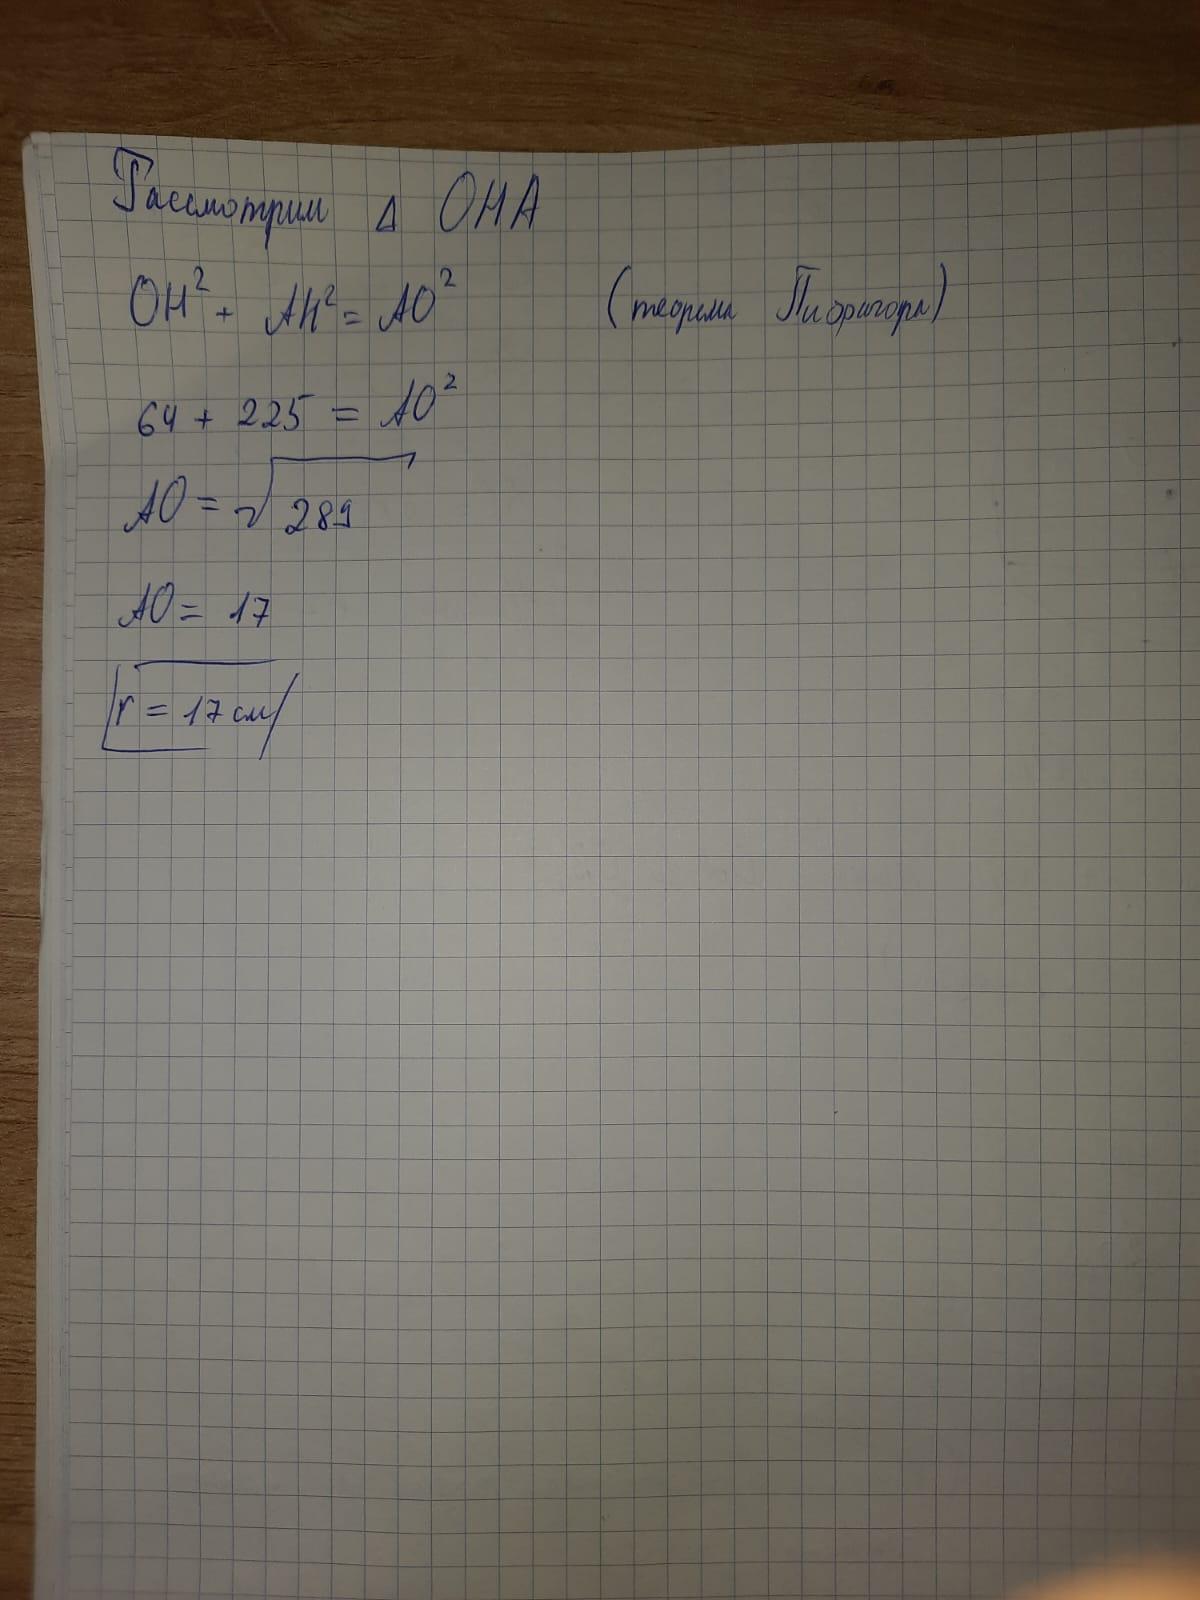 Рассмотрим Δ OHA
OH² + AH² = AO² (теорема Пифагора)
64 + 225 = AO²
AO = √289
AO = 17
r = 17 см